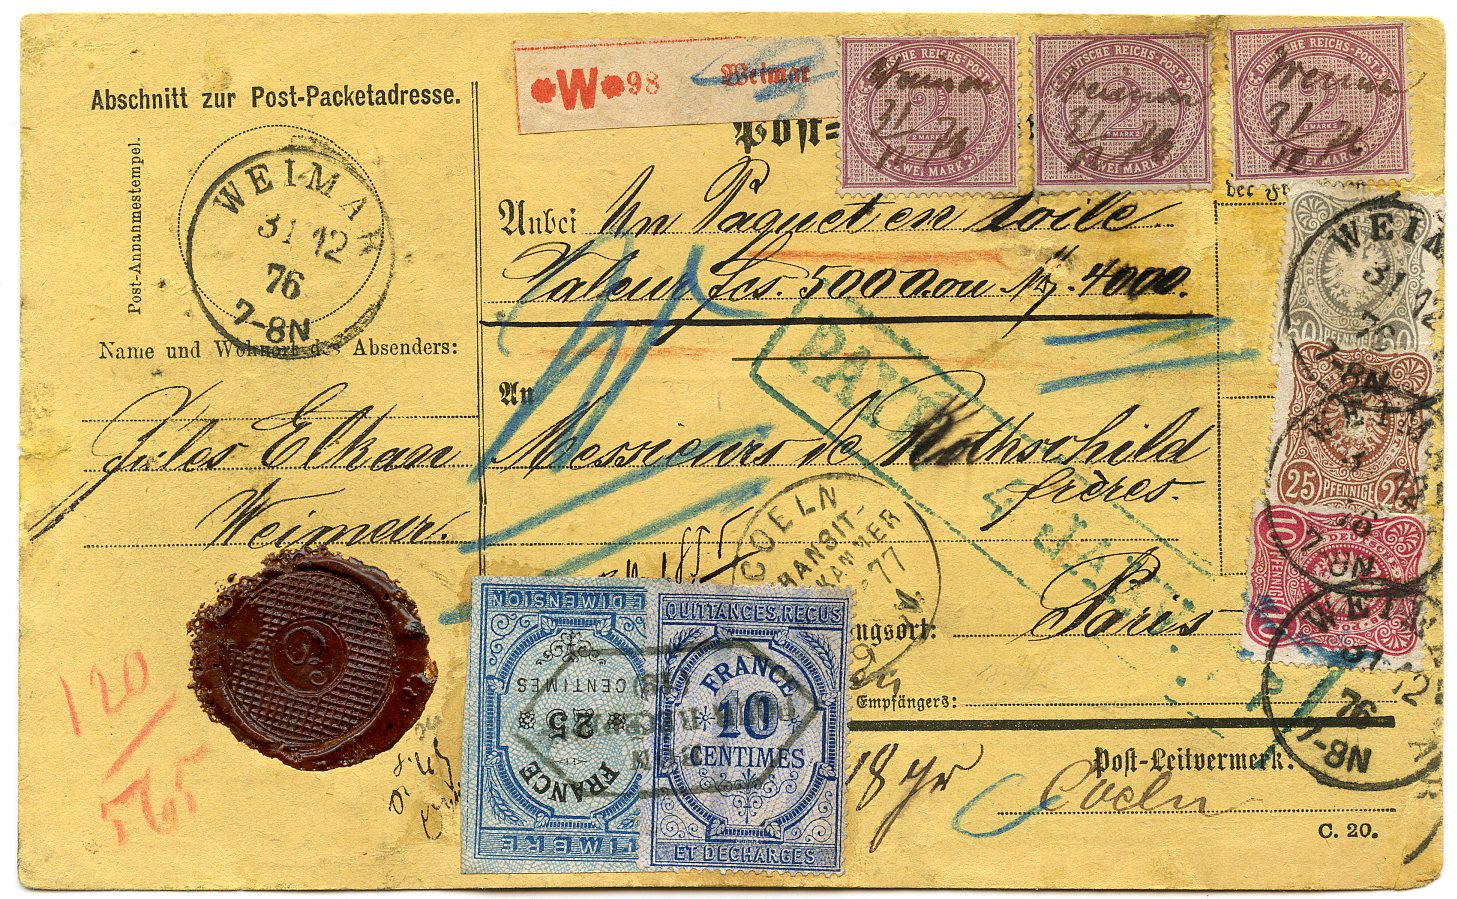 Abschnitt zur Post-Packetadresse.
Post-Annahmestempel.
WEIMAR
31 12
76
7-8N
Name und Wohnort des Absenders:
Jules Elkan
Weimar.
120
565
W 98 Weimar
Post=
DEUTSCHE REICHS-POST
2
2 MARK 2
ZWEI MARK
Weimar
31/12 76
DEUTSCHE REICHS-POST
2
2 MARK 2
ZWEI MARK
Weimar
31/12 76
DEUTSCHE REICHS-POST
2
2 MARK 2
ZWEI MARK
Weimar
31/12 76
Anbei Un Paquet en toile
Valeur fcs. 5000 ou M. 4000.
An
Messieurs de Rothschild
frères.
Paris
COELN
TRANSIT-
KAMMER
77
ngsort:
Empfängers:
18 gr
Post-Leitvermerk:
Coeln
C. 20.
50 PFENNIGE 50
WEIM
31 12
76
7-8N
25 PFENNIGE 25
WEIM
7-8N
10 PFENNIG 10
WEIMAR
31 12
76
7-8N
DIMENSION
CENTIMES
25
FRANCE
TIMBRE
QUITTANCES, REÇUS
FRANCE
10
CENTIMES
ET DÉCHARGES